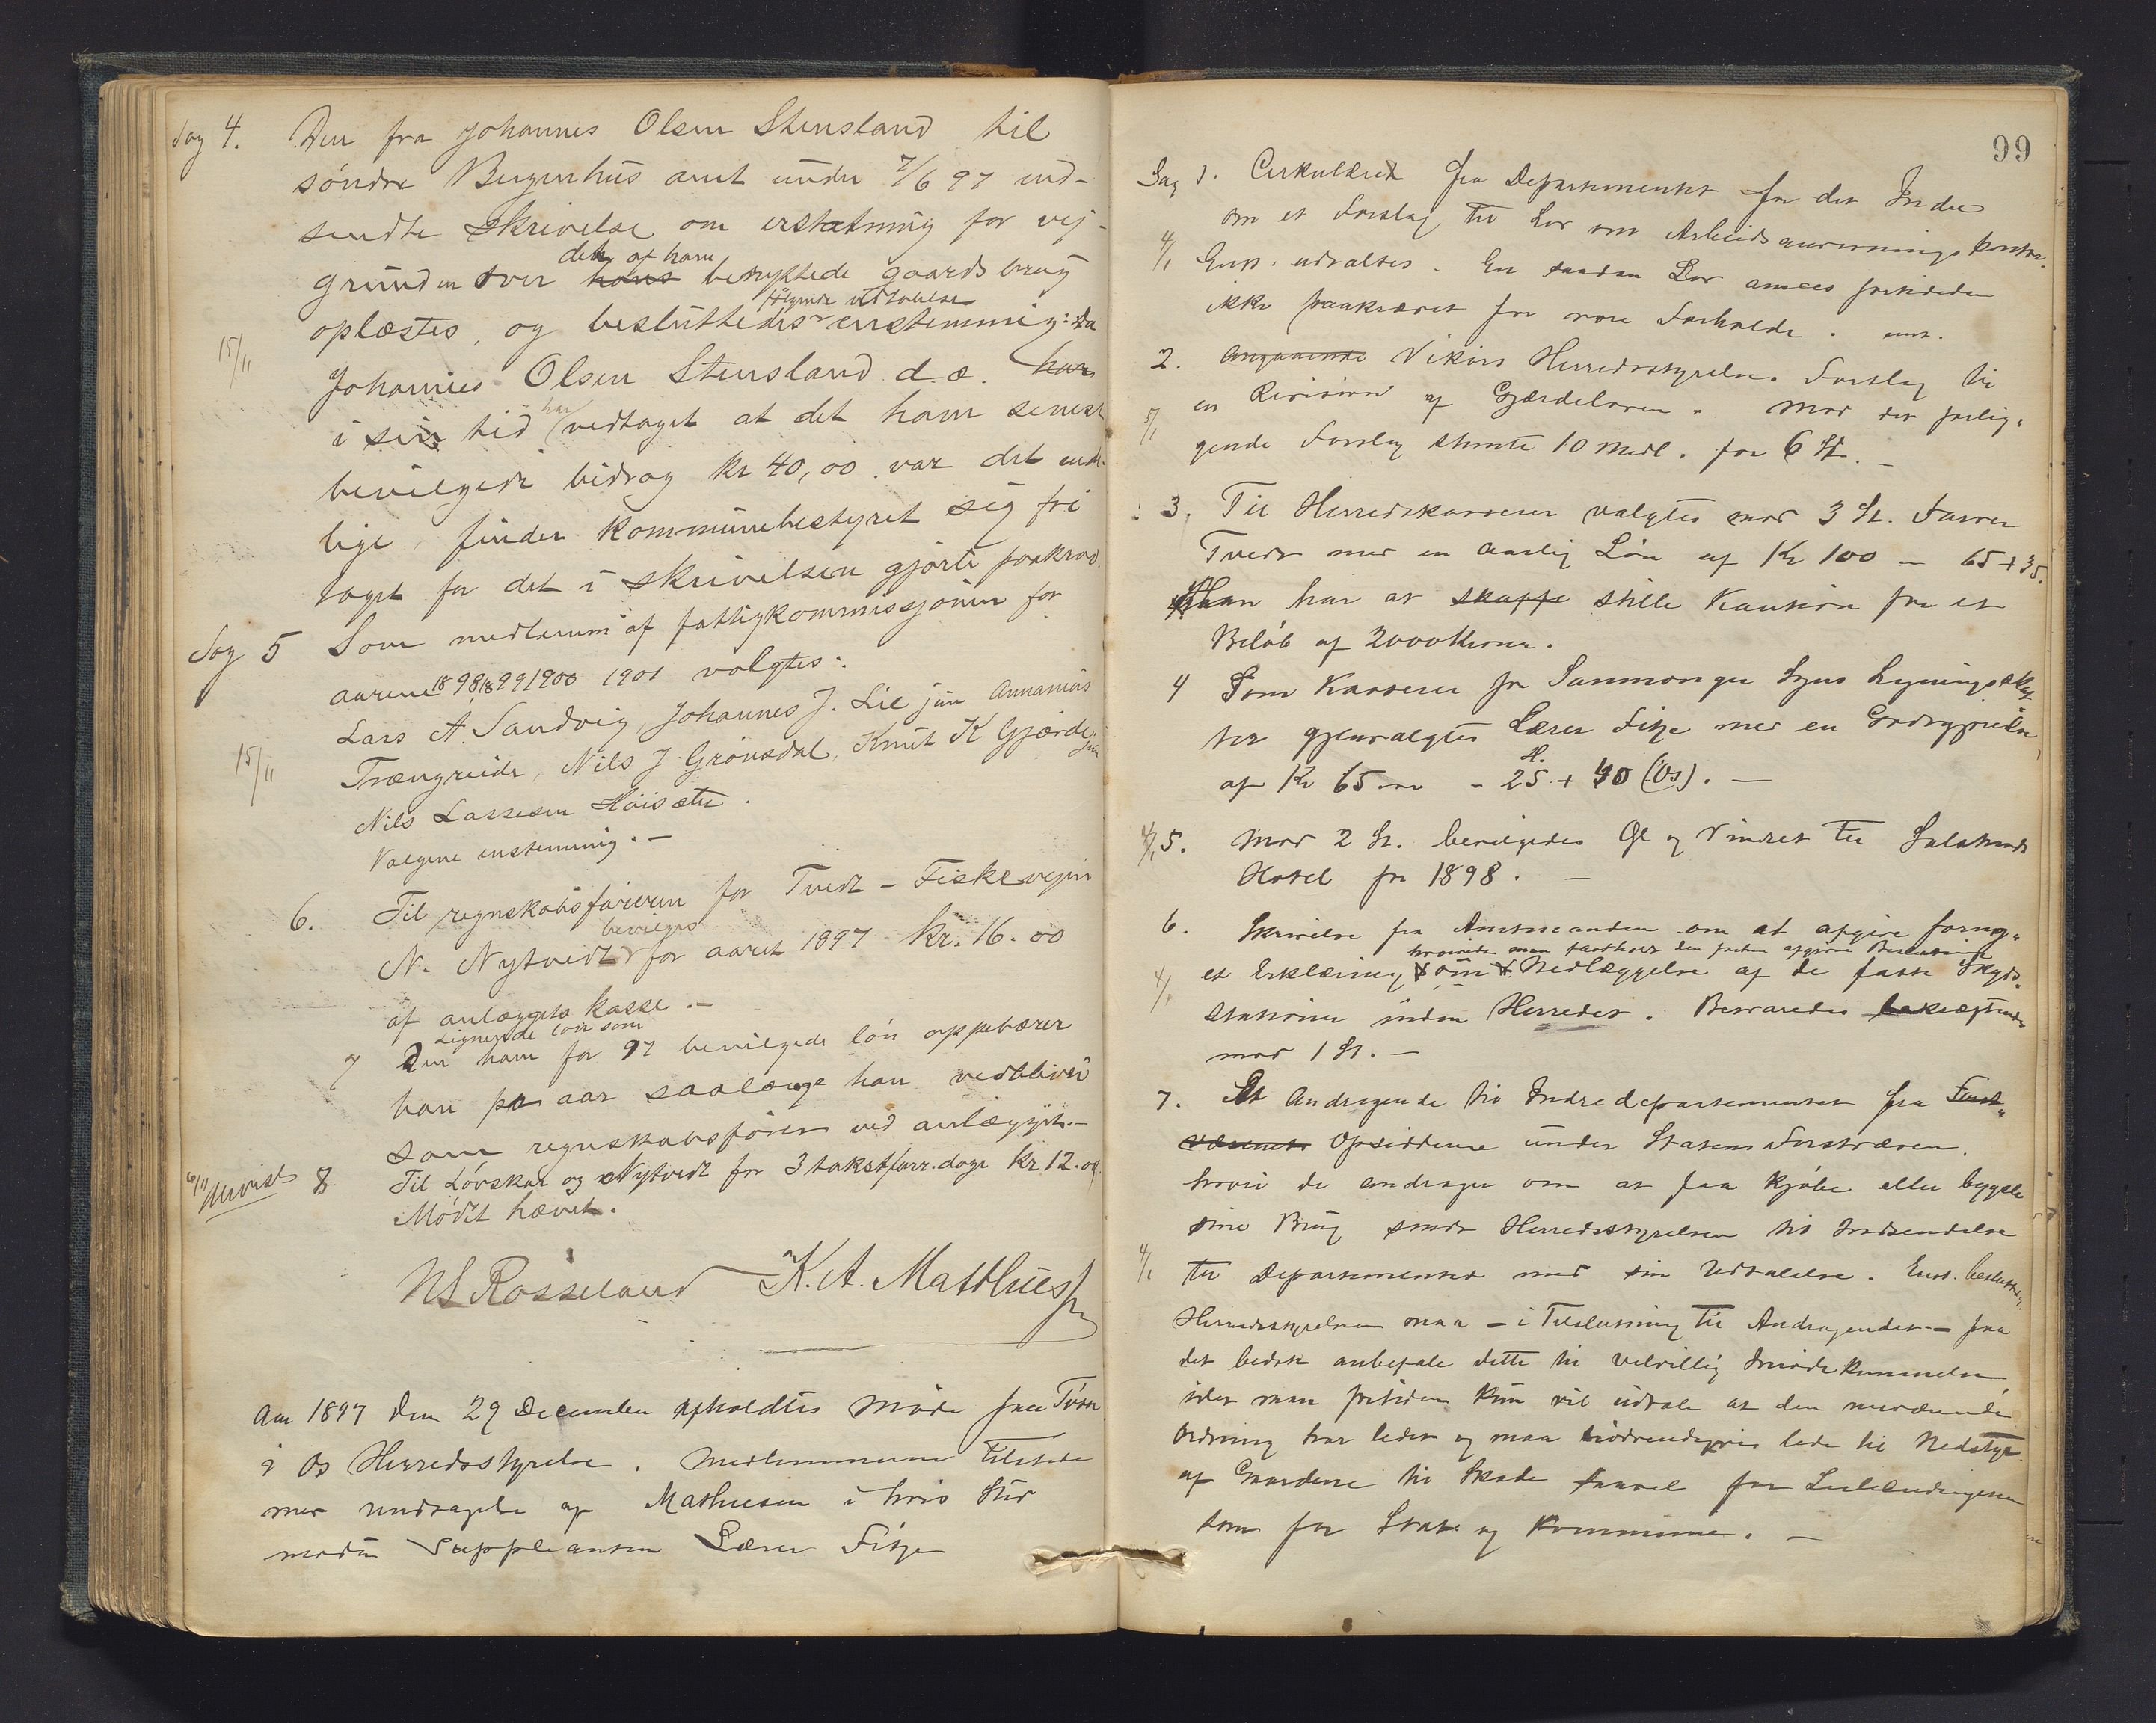 Sag 4. Den fra Johannes Olsen Stensland til
søndre Bergenhus amt under 7/6 97 ind-
sendte skrivelse om erstatning for vej-
grunden over hans det af ham benyttede gaardsbrug
oplæstes, og besluttedes følgende udtalelse enstemmig: Da
15/11
Johannes Olsen Stensland d. æ. har
i sin tid har vedtaget at det ham senest
bevilgede bidrag kr 40,00 var det ende-
lige, finder kommunebestyret sig fri
taget for det i skrivelsen gjorte paakrav.
Sag 5 Som medlemmer af fattigkommissjonen for
aarene 1898 1899 1900 1901 valgtes:
Lars A. Sandvig, Johannes J. Lie jun Annanias
15/11
Trængreide, Nils J Grønsdal, Knut K Gjærde jun
Nils Lassesen Höisæter.
Valgene enstemmig.–
6. Til regnskabsføreren for Tvedt – Fiskevejen
N. Nytvedt bevilges for aaret 1897 kr. 16.00
af anlæggets kasse.–
7 Den Lignende løn som ham for 97 bevilgede løn oppebærer
han pr aar saalænge han vedbliver
som regnskabsfører ved anlægget.–
6/11 Anvist 8 Til Lövskar og Nytvedt for 3 takstforr. dage kr 12.00
Mödet hævet.
NL Røsseland K. A. Mathiesen
Aar 1897 den 29 December afholdtes Møde paa Tøsse
i Os Herredsstyrelse. Medlemmerne tilstede
med undtagelse af Mathiesen i hvis Sted
mødte Suppleanten Lærer Fitje
99
Sag 1. Cirkulære fra Departementet for det Indre
om et Forslag til Lov om Arbeidsanvisningskontor.
4/1 Enst. udtaltes. En saadan Lov ansees fortiden
ikke paakrævet for vore Forhold. enst.
2. Angaaende Vikørs Herredsstyrelses Forslag til
en Revision af Gjærdeloven. Mod det forelig-
5/1
gende Forslag stemte 10 Medl. for 6 St. –
3. Til Herredskasserer valgtes mod 3 St. Farver
Tvedt med en aarlig Løn af Kr 100 – 65 + 35.
Han har at skaffe stille Kaution for et
Beløb af 2000 Kroner.
4 Som Kasserer for Samnanger Sogns Lysningsskat-
ter gjenvalgtes Lærer Fitje med en Godtgjørelse
af Kr 65 – 25 H. + 40 (Os). –
4/1 5. Mod 2 St. bevilgedes Øl og Vinret til Solstrand
Hotel for 1898. –
6. Skrivelse fra Amtmanden om at afgive forny-
et Erklæring hvorvidt man fastholder den forhen afgivne Beslutning om Nedlæggelse af de faste Skyds-
4/1
stationer inden Herredet. Besvaredes bekræftende
mod 1 St. –
7. Et Andragende til Indredepartementet fra Forst-
væsenets Opsiddere under Statens Forstvæsen,
hvori de andrager om at faa kjøbe eller bygsle
sine Brug sendt Herredsstyrelsen til Indsendelse
4/1 til Departementet med sin Udtalelse. Enst. besluttet:
Herredsstyrelsen maa – i Tilslutning til Andragendet – paa
det bedste anbefale dette til velvillig Imødekommelse,
idet man fortiden kun vil udtale at den nuværende
Ordning har ledet og maa nødvendigvis lede til Nedstyr
af Gaardene til Skade saavel for Leilændingene
som for Stat og Kommune. –